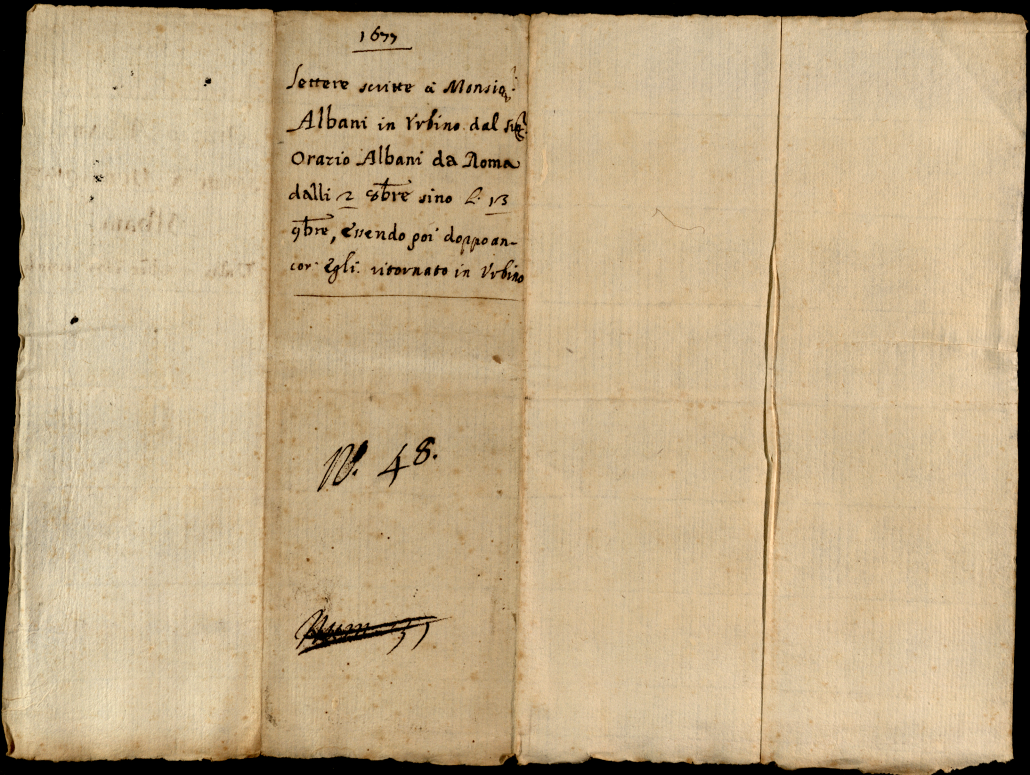 1677
Lettere scritte à Monsigr.
Albani in Vrbino dal Sigr.
Orazio Albani da Roma
dalli 2 8bre sino li 13
9bre, essendo poi doppo an-
cor' Egli ritornato in Vrbino
N. 48.
Num.